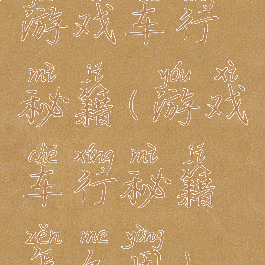 游戏车行
mì jí yóu xì
秘籍(游戏
chē xíng mì jí
车行秘籍
zěn me yòng
怎么用)